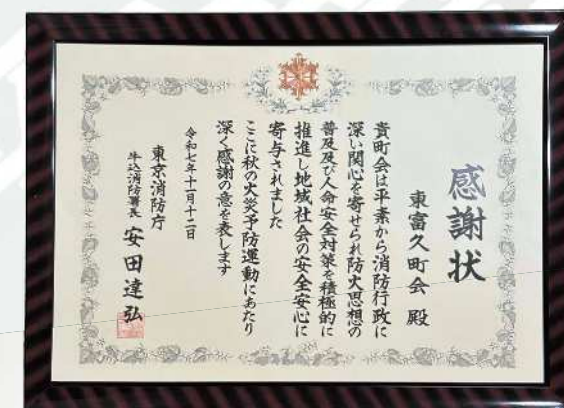 感謝状
東富久町会 殿
貴町会は平素から消防行政に
深い関心を寄せられ防火思想の
普及及び人命安全対策を積極的に
推進し地域社会の安全安心に
寄与されました
ここに秋の火災予防運動にあたり
深く感謝の意を表します
令和七年十一月十二日
東京消防庁
牛込消防署長 安田達弘